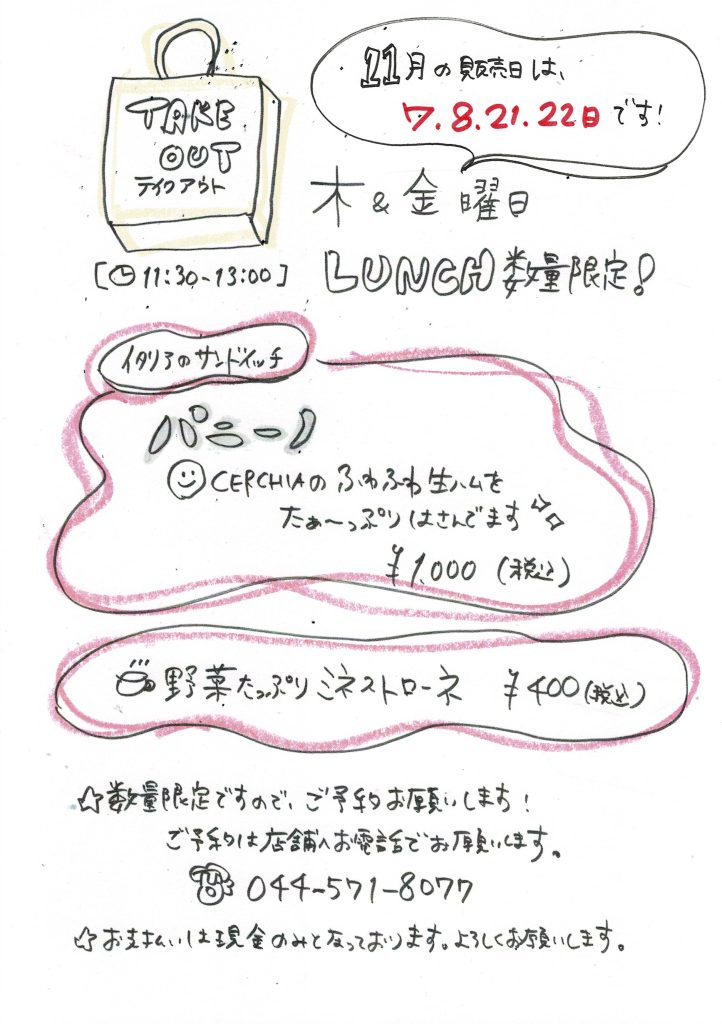 TAKE
OUT
テイクアウト
11月の販売日は、
7.8.21.22日です!
木&金曜日
[11:30-13:00]
LUNCH数量限定!
イタリアのサンドイッチ
パニーノ
CERCHIAのふわふわ生ハムを
たぁ〜っぷりはさんでます
¥1,000(税込)
野菜たっぷりミネストローネ ¥400(税込)
☆数量限定ですので、ご予約お願いします!
ご予約は店舗へお電話でお願いします。
044-571-8077
☆お支払いは現金のみとなっております。よろしくお願いします。